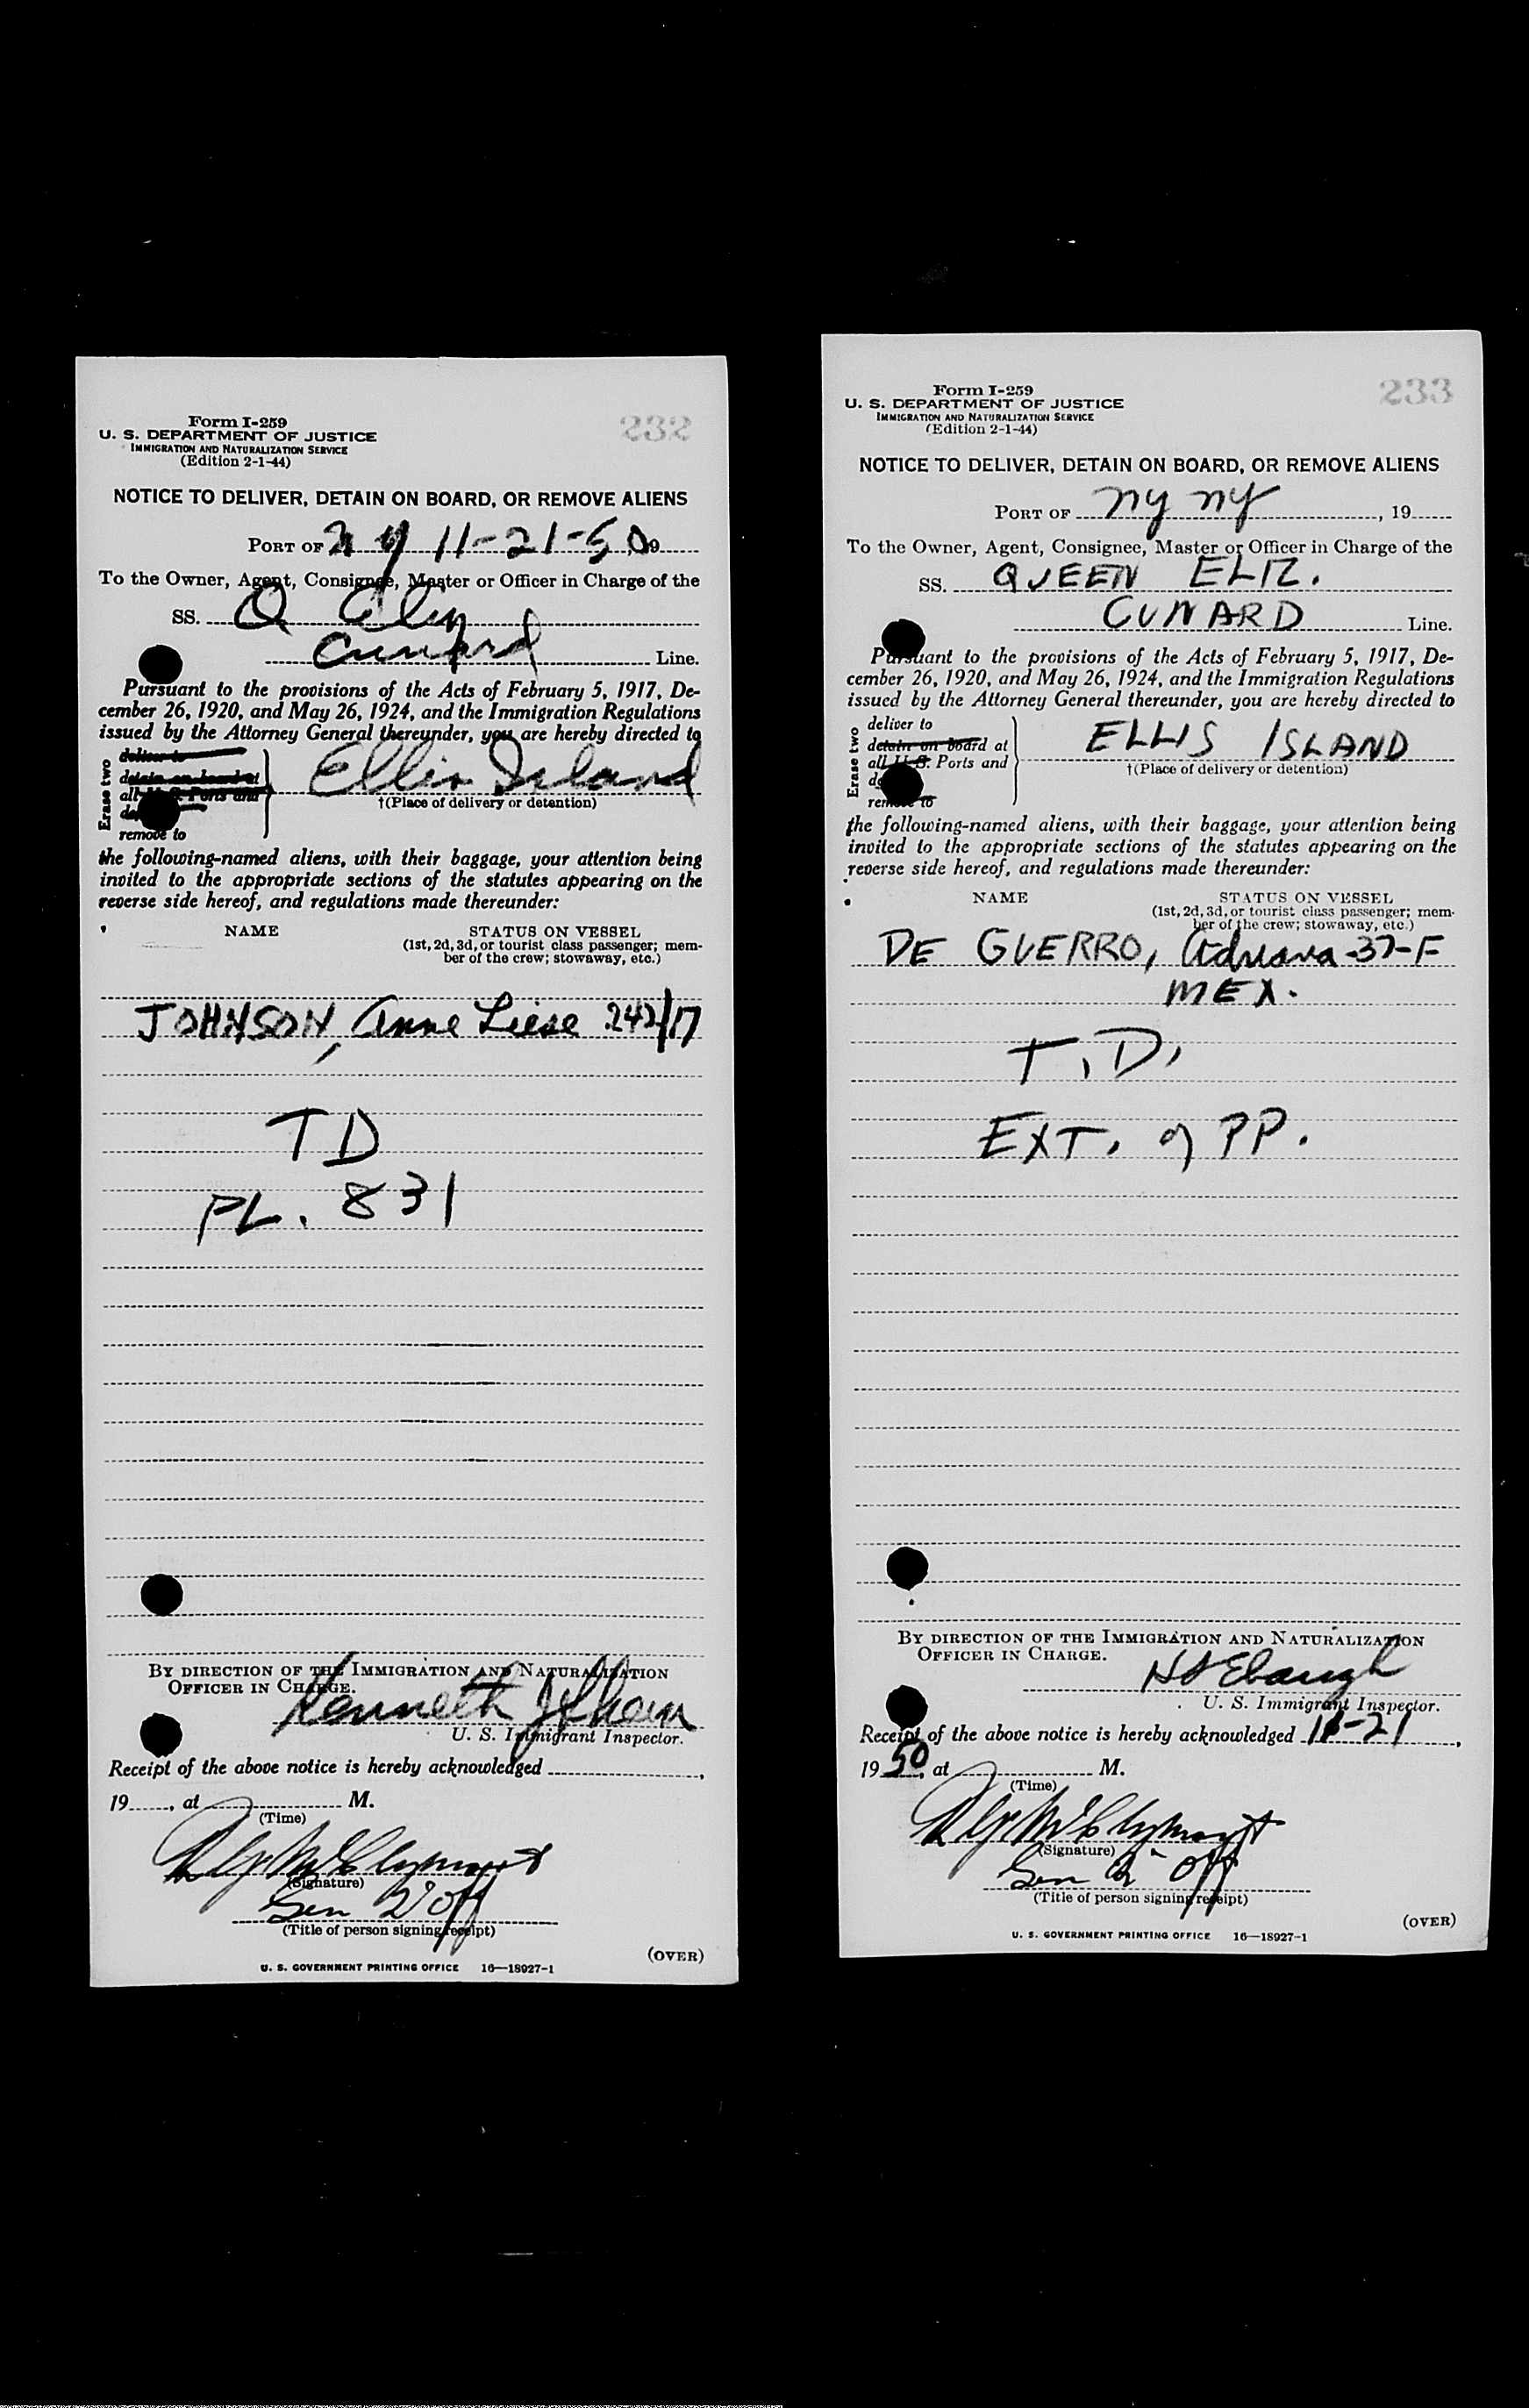 Form I-259
U. S. DEPARTMENT OF JUSTICE
IMMIGRATION AND NATURALIZATION SERVICE
(Edition 2-1-44)
232
NOTICE TO DELIVER, DETAIN ON BOARD, OR REMOVE ALIENS
PORT OF N Y 11-21-50 19
To the Owner, Agent, Consignee, Master or Officer in Charge of the
SS. Q Eliz
Cunard Line.
Pursuant to the provisions of the Acts of February 5, 1917, De-
cember 26, 1920, and May 26, 1924, and the Immigration Regulations
issued by the Attorney General thereunder, you are hereby directed to
Erase two
deliver to
detain on board at
all U. S. Ports and
remove to
Ellis Island
†(Place of delivery or detention)
the following-named aliens, with their baggage, your attention being
invited to the appropriate sections of the statutes appearing on the
reverse side hereof, and regulations made thereunder:
NAME STATUS ON VESSEL
(1st, 2d, 3d, or tourist class passenger; mem-
ber of the crew; stowaway, etc.)
JOHNSON, Anne Liese 242/17
TD
PL. 831
BY DIRECTION OF THE IMMIGRATION AND NATURALIZATION
OFFICER IN CHARGE.
Kenneth
U. S. Immigrant Inspector.
Receipt of the above notice is hereby acknowledged ,
19 , at M.
(Time)
(Signature)
Sen 2° Off
(Title of person signing receipt)
(OVER)
U. S. GOVERNMENT PRINTING OFFICE 16—18927-1
Form I-259
U. S. DEPARTMENT OF JUSTICE
IMMIGRATION AND NATURALIZATION SERVICE
(Edition 2-1-44)
233
NOTICE TO DELIVER, DETAIN ON BOARD, OR REMOVE ALIENS
PORT OF NY NY , 19
To the Owner, Agent, Consignee, Master or Officer in Charge of the
SS. QUEEN ELIZ.
CUNARD Line.
Pursuant to the provisions of the Acts of February 5, 1917, De-
cember 26, 1920, and May 26, 1924, and the Immigration Regulations
issued by the Attorney General thereunder, you are hereby directed to
Erase two
deliver to
detain on board at
all U. S. Ports and
remove to
ELLIS ISLAND
†(Place of delivery or detention)
the following-named aliens, with their baggage, your attention being
invited to the appropriate sections of the statutes appearing on the
reverse side hereof, and regulations made thereunder:
NAME STATUS ON VESSEL
(1st, 2d, 3d, or tourist class passenger; mem-
ber of the crew; stowaway, etc.)
DE GUERRO, Adriana-37-F
MEX.
T.D.
EXT. of PP.
BY DIRECTION OF THE IMMIGRATION AND NATURALIZATION
OFFICER IN CHARGE.
Ebaugh
U. S. Immigrant Inspector.
Receipt of the above notice is hereby acknowledged 11-21 ,
19 50, at M.
(Time)
(Signature)
Sen 2° Off
(Title of person signing receipt)
(OVER)
U. S. GOVERNMENT PRINTING OFFICE 16—18927-1